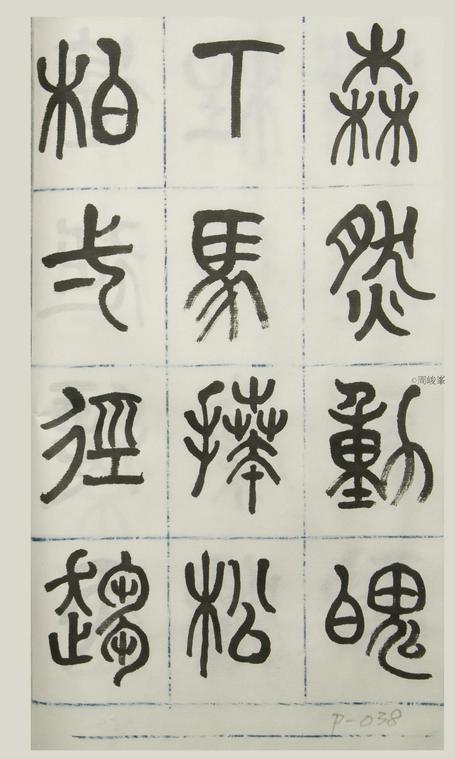 森然動魄
下馬拜松
柏徑趨
©周峻峯
P-038